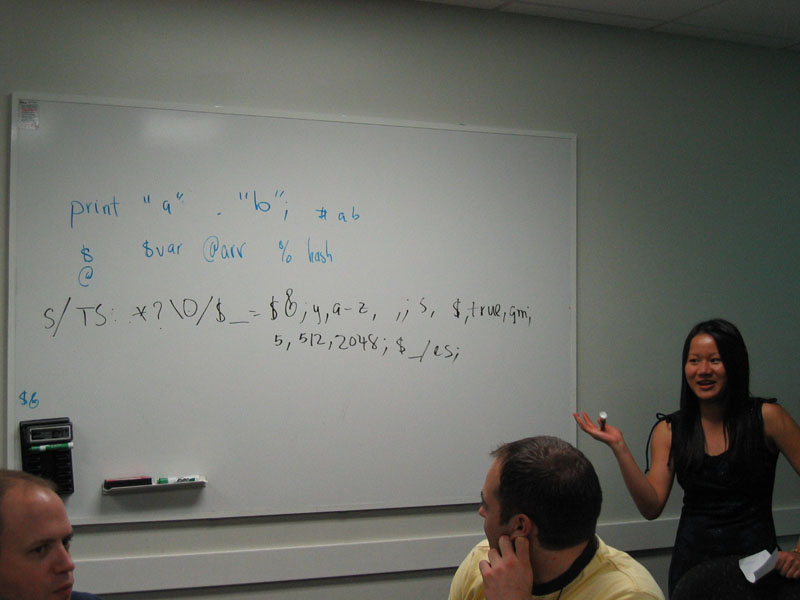 print "a" . "b"; # ab
$ $var @arr % hash
@
s/TS: .*?\0/$_=$&;y,a-z, ,;s, $,true,gm;
5,512,2048;$_/es;
$&